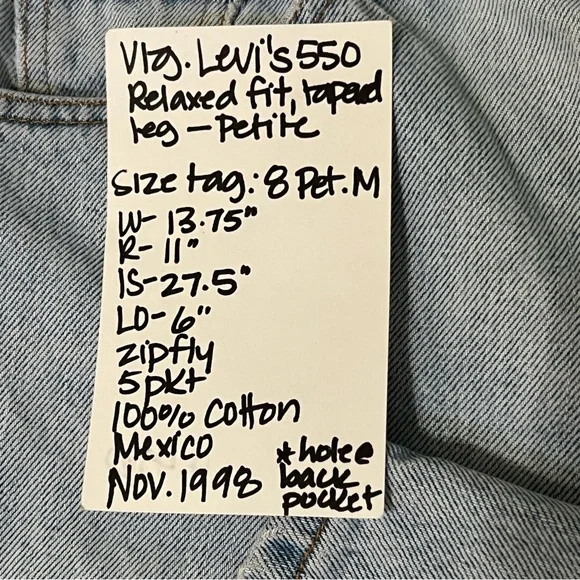 Vtg. Levi's 550
Relaxed fit, tapered
leg – Petite
Size tag: 8 Pet. M
W- 13.75"
R- 11"
IS- 27.5"
LO- 6"
zipfly
5pkt
100% Cotton
Mexico
Nov. 1998
*hole@
back
pocket